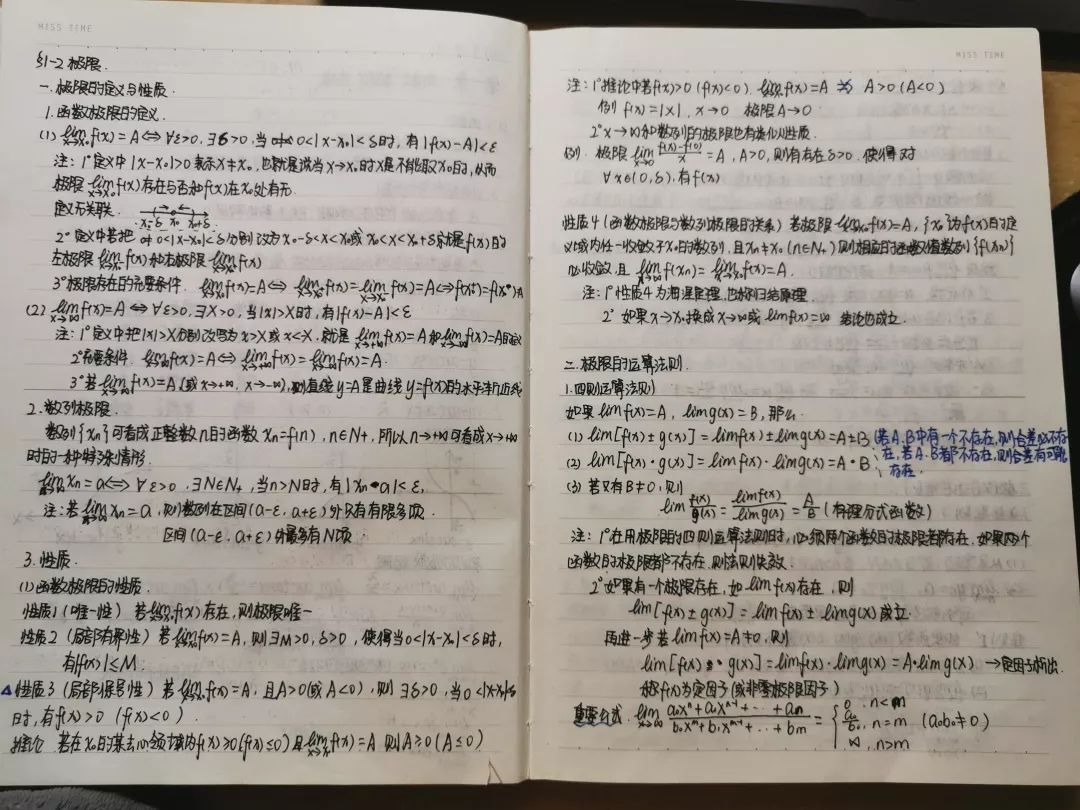 MISS TIME
§1-2 极限.
一. 极限的定义与性质.
1. 函数极限的定义.
(1) lim_{x→x₀} f(x) = A ⇔ ∀ε>0, ∃δ>0, 当 0<|x-x₀|<δ时, 有|f(x)-A|<ε
注: 1° 定义中|x-x₀|>0表示x≠x₀, 也就是说当x→x₀时x是不能取x₀的, 从而
极限 lim_{x→x₀} f(x)存在与否和f(x)在x₀处有无
定义无关联. x₀-δ x₀ x₀+δ
2° 定义中若把 0<|x-x₀|<δ分别改为x₀-δ<x<x₀或x₀<x<x₀+δ就是f(x)的
左极限 lim_{x→x₀⁻} f(x)和右极限 lim_{x→x₀⁺} f(x)
3° 极限存在的充要条件. lim_{x→x₀} f(x)=A ⇔ lim_{x→x₀⁻} f(x)= lim_{x→x₀⁺} f(x)=A ⇔ f(x₀⁻)=f(x₀⁺)=A
(2) lim_{x→∞} f(x)=A ⇔ ∀ε>0, ∃X>0, 当|x|>X时, 有|f(x)-A|<ε
注: 1° 定义中把|x|>X分别改写为x>X或x<-X, 就是 lim_{x→+∞} f(x)=A和 lim_{x→-∞} f(x)=A的定义
2° 充要条件. lim_{x→∞} f(x)=A ⇔ lim_{x→+∞} f(x)= lim_{x→-∞} f(x)=A.
3° 若 lim_{x→∞} f(x)=A (或x→+∞, x→-∞), 则直线y=A是曲线y=f(x)的水平渐近线
2. 数列极限.
数列{xₙ}可看成正整数n的函数 xₙ=f(n), n∈N+, 所以n→+∞可看成x→+∞
时的一种特殊情形.
lim_{n→∞} xₙ=a ⇔ ∀ε>0, ∃N∈N+, 当n>N时, 有|xₙ-a|<ε,
注: 若 lim_{n→∞} xₙ=a, 则数列在区间(a-ε, a+ε)外只有有限多项.
区间(a-ε, a+ε)外最多有N项.
3. 性质.
(1) 函数极限的性质.
性质1 (唯一性) 若 lim_{x→x₀} f(x)存在, 则极限唯一
性质2 (局部有界性) 若 lim_{x→x₀} f(x)=A, 则∃M>0, δ>0, 使得当0<|x-x₀|<δ时,
有|f(x)|≤M.
△ 性质3 (局部保号性) 若 lim_{x→x₀} f(x)=A, 且A>0(或A<0), 则∃δ>0, 当0<|x-x₀|<δ
时, 有f(x)>0 (f(x)<0).
推论 若在x₀的某去心领域内f(x)≥0(f(x)≤0)且 lim_{x→x₀} f(x)=A 则A≥0(A≤0)
MISS TIME
注: 1° 推论中若f(x)>0 (f(x)<0), lim_{x→x₀} f(x)=A ⇏ A>0 (A<0)
例 f(x)=|x|, x→0 极限A→0
2° x→∞和数列的极限也有类似性质.
例. 极限 lim (f(x)-f(0))/x = A, A>0, 则存在δ>0. 使得对
∀x∈(0,δ). 有f(x)
性质4 (函数极限与数列极限的关系) 若极限 lim_{x→x₀} f(x)=A, {xₙ}为f(x)的定
义域内任一收敛于x₀的数列, 且xₙ≠x₀ (n∈N+) 则相应的函数值数列{f(xₙ)}
必收敛, 且 lim_{n→∞} f(xₙ)= lim_{x→x₀} f(x)=A.
注: 1° 性质4为海涅定理, 也称归结原理.
2° 如果x→x₀换成x→∞或limf(x)=∞ 结论也成立.
二. 极限的运算法则.
1. 四则运算法则
如果 lim f(x)=A, lim g(x)=B, 那么.
(1) lim[f(x)±g(x)]=limf(x)±limg(x)=A±B (若A.B中有一个不存在, 则合差必不存
(2) lim[f(x)·g(x)]=limf(x)·limg(x)=A·B 在, 若A.B都不存在, 则合差有可能
存在.
(3) 若又有B≠0, 则
lim f(x)/g(x) = limf(x)/limg(x) = A/B (有理分式函数)
注: 1° 在用极限的四则运算法则时, 必须两个函数的极限都存在. 如果两个
函数的极限都不存在. 则法则失效.
2° 如果有一个极限存在, 如limf(x)存在, 则
lim[f(x)±g(x)]=limf(x)±limg(x)成立.
再进一步若limf(x)=A≠0, 则
lim[f(x)·g(x)]=limf(x)·limg(x)=A·limg(x) →定因子析出.
称f(x)为定因子(或非零极限因子)
重要公式. lim_{x→∞} (a₀xⁿ+a₁xⁿ⁻¹+···+aₙ)/(b₀xᵐ+b₁xᵐ⁻¹+···+bₘ) = { 0, n<m
a₀/b₀, n=m (a₀b₀≠0)
∞, n>m